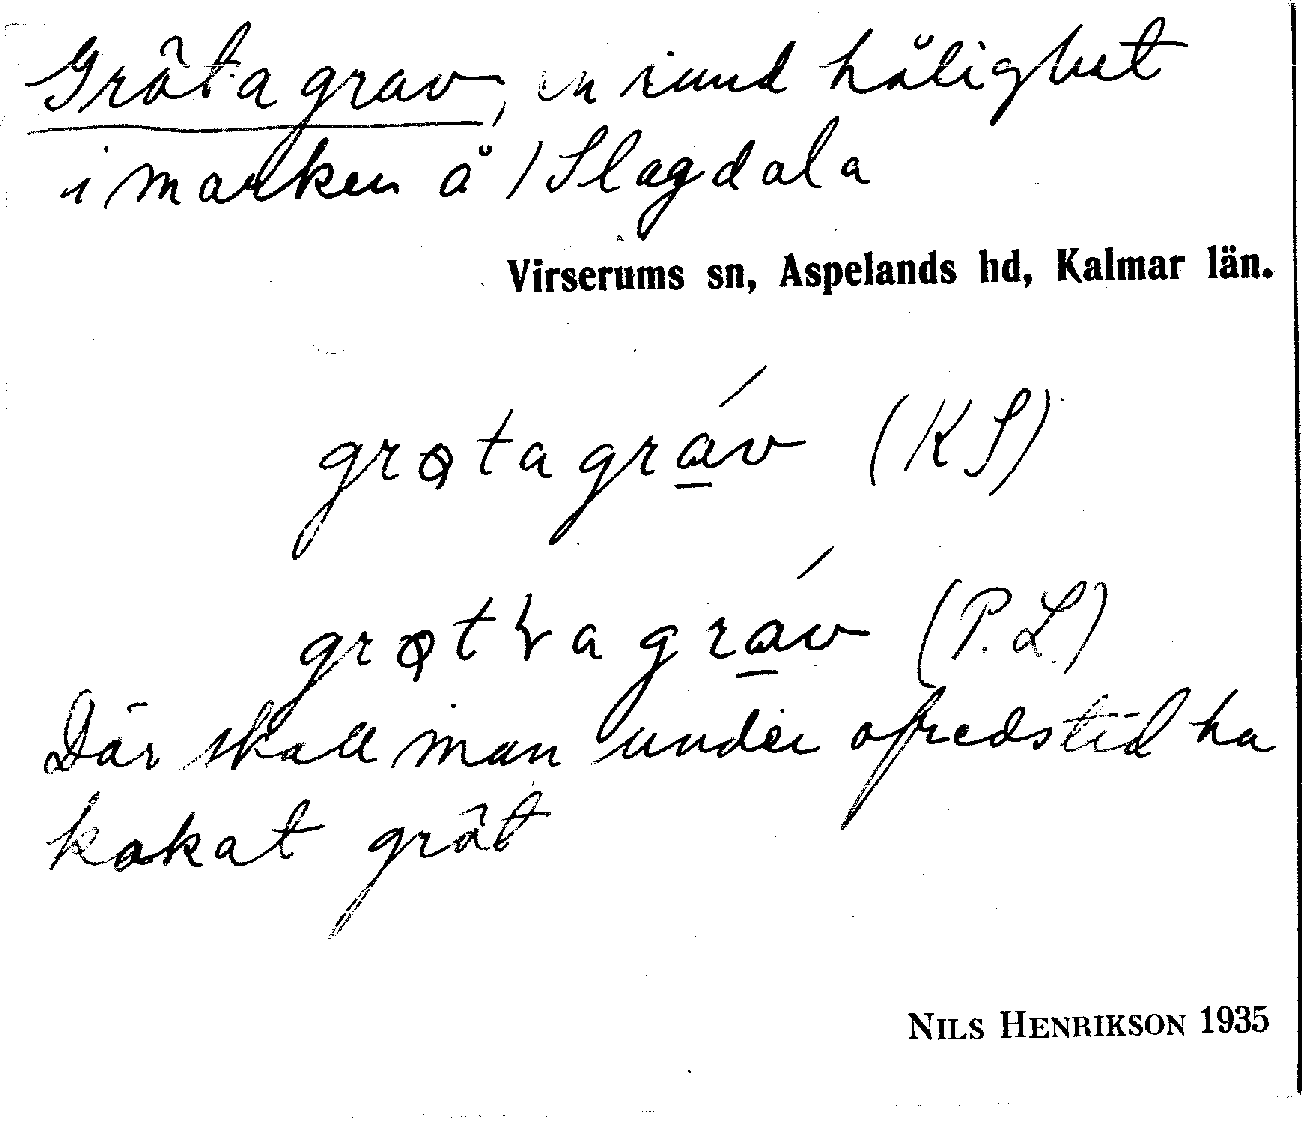 Grötagrav, en rund hålighet
i marken å /Slagdala
Virserums sn, Aspelands hd, Kalmar län.
grøtagrav́ (KS)
(P.L)
Där skall man under ofredstid ha
kokat gröt
NILS HENRIKSON 1935